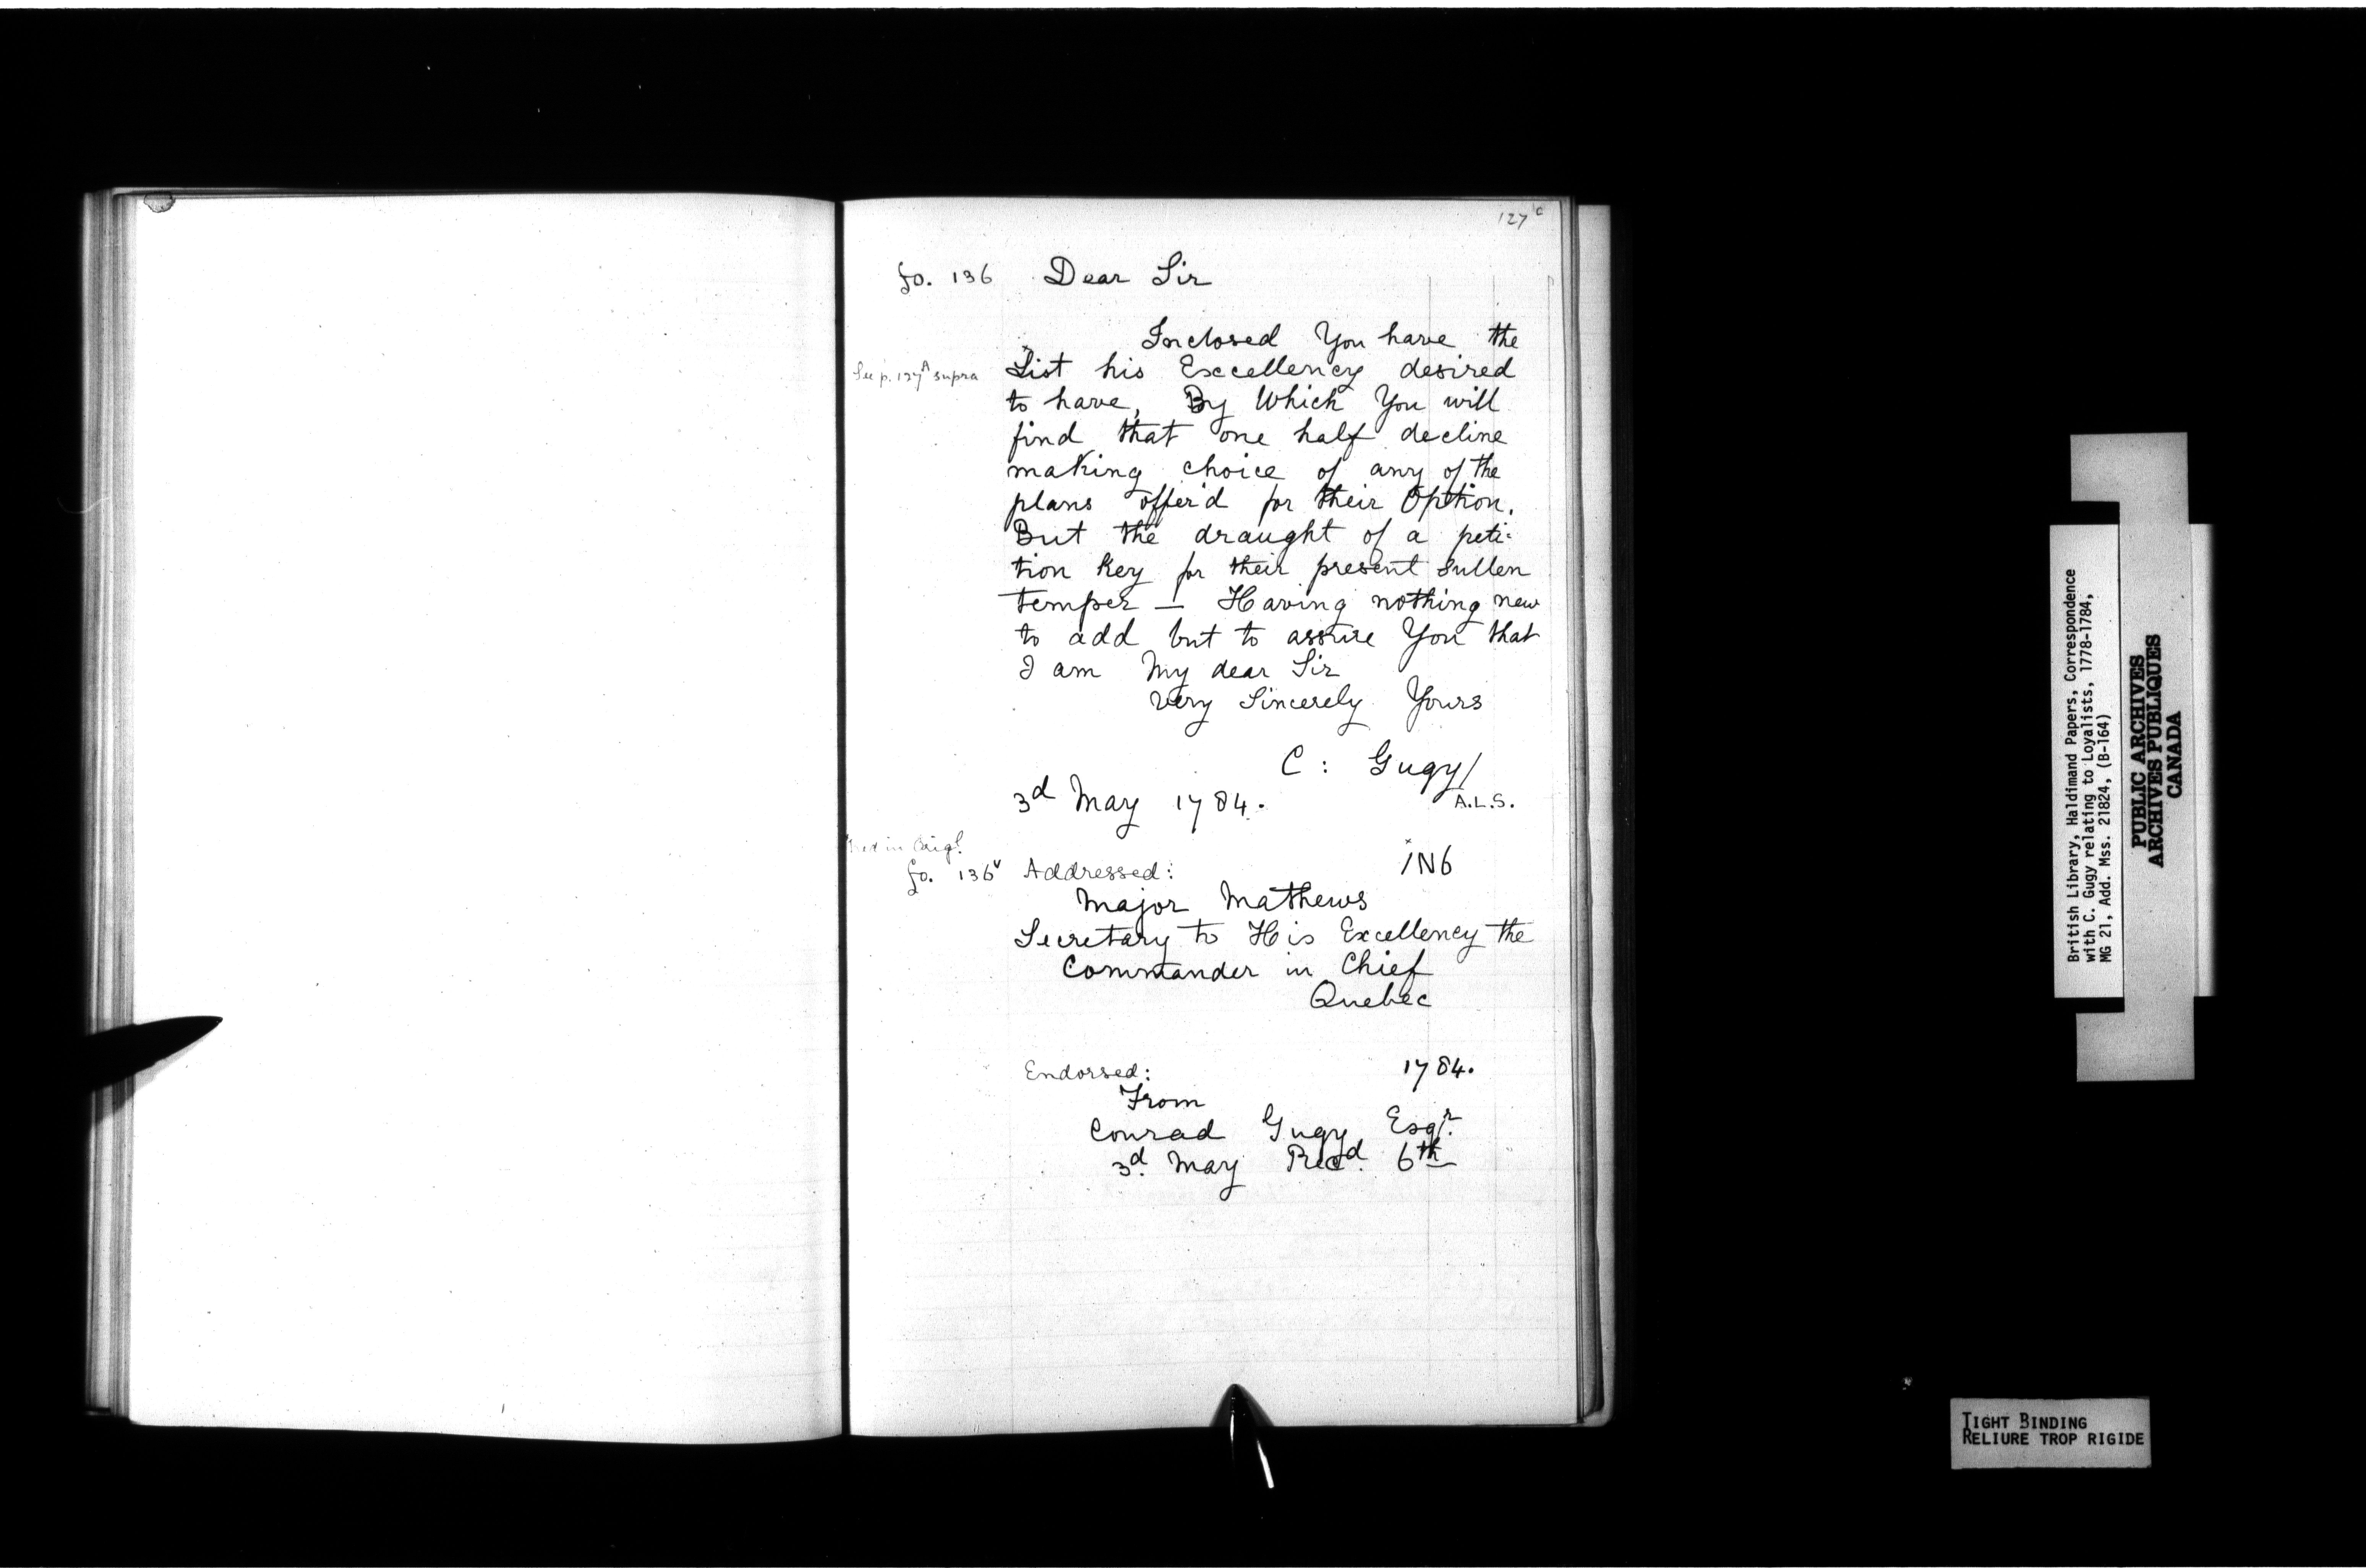 127 c
fo. 136 Dear Sir
Inclosed You have the
See p. 127 A supra x List his Excellency desired
to have, By Which You will
find that one half decline
making choice of any of the
plans offer'd for their Option.
But the draught of a peti-
tion Key for their present Sullen
temper — Having nothing new
to add but to assure You that
I am My dear Sir
Very Sincerely Yours
C: Gugy/
3d May 1784. A.L.S.
x in Origl.
fo. 136v Addressed: x 1N6
Major Mathews
Secretary to His Excellency the
Commander in Chief
Quebec
Endorsed: 1784.
From
Conrad Gugy Esqr.
3d. May Recd. 6th
British Library, Haldimand Papers, Correspondence
with C. Gugy relating to Loyalists, 1778-1784,
MG 21, Add. Mss. 21824, (B-164)
PUBLIC ARCHIVES
ARCHIVES PUBLIQUES
CANADA
TIGHT BINDING
RELIURE TROP RIGIDE